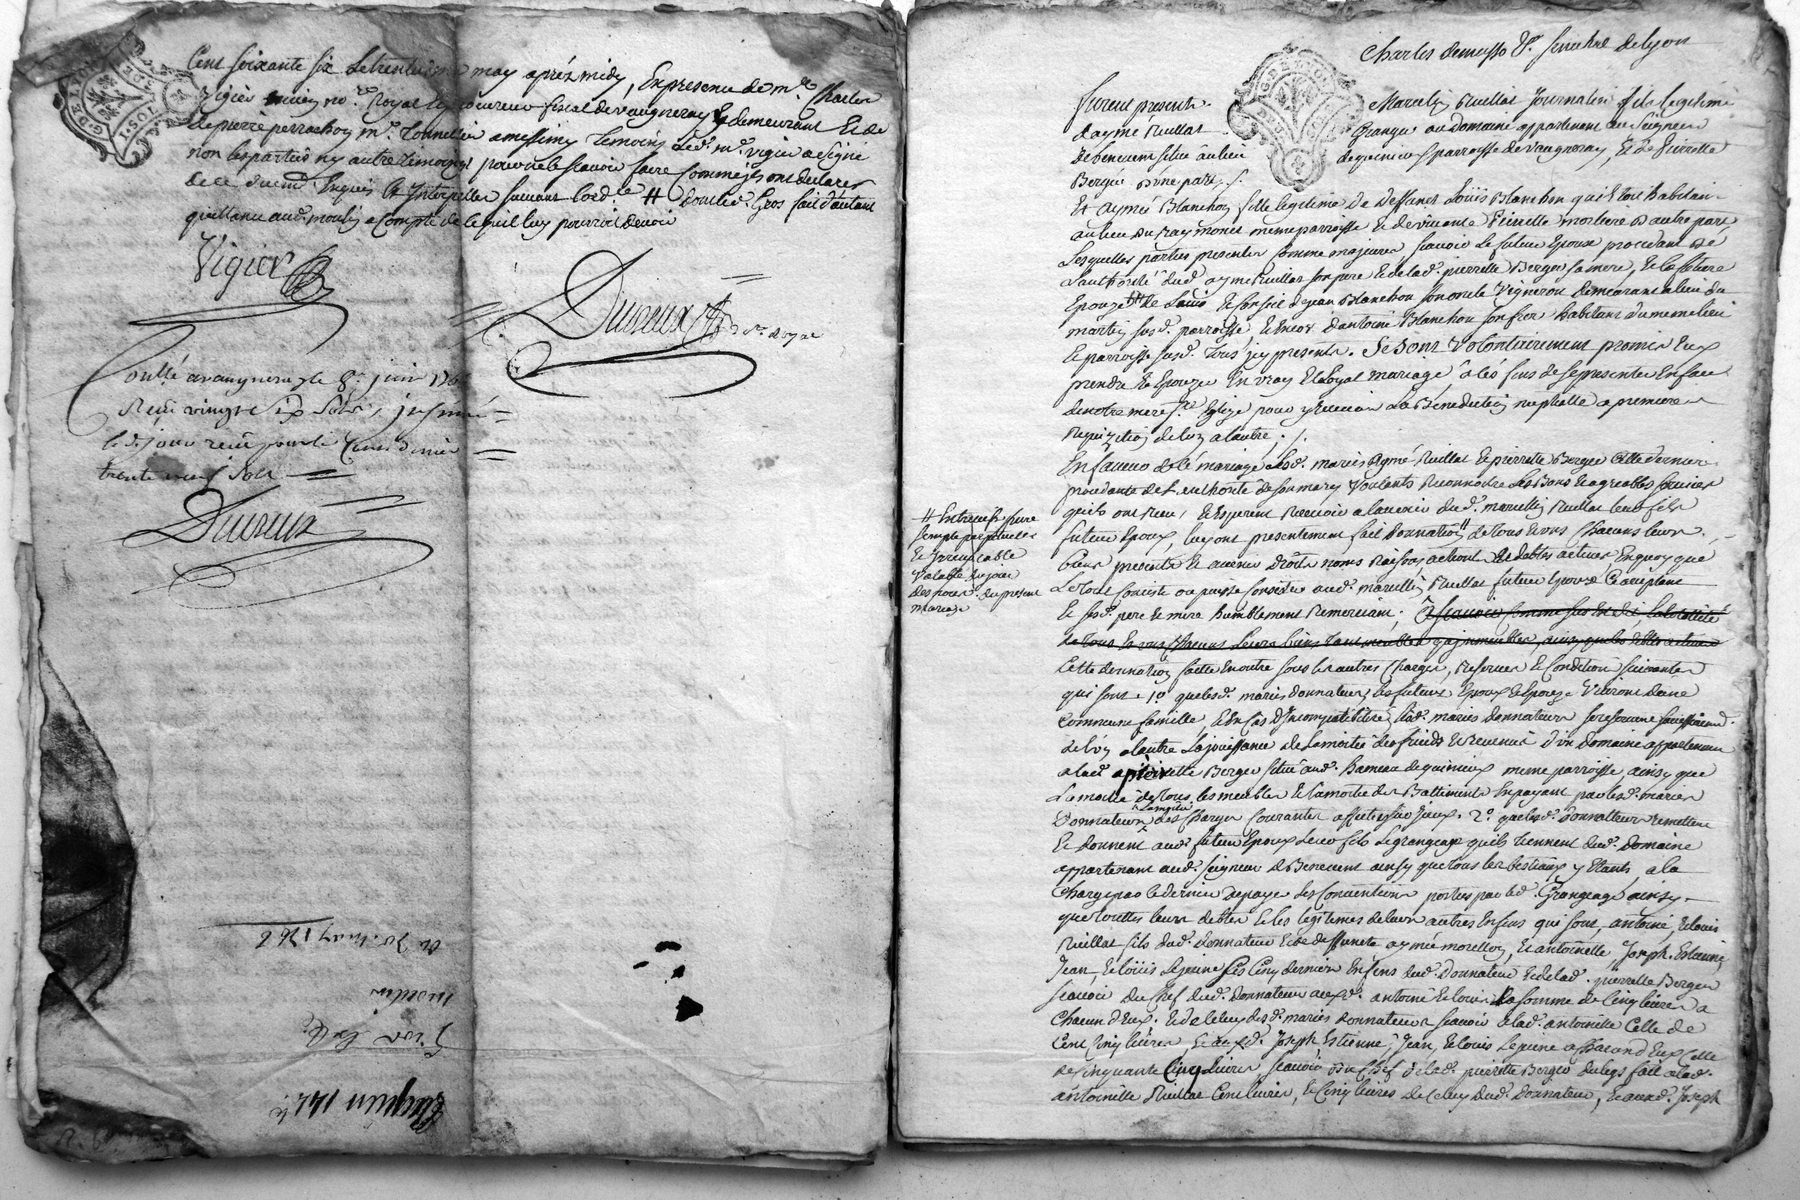 Cent soixante six Le trentieme may après midy, En presence de me. Charles
Vigier ancien no.re Royal et procureur fiscal de vaugneray y demeurant Et de
de pierre perrachon m.e Tonnelier a messimy Temoins Led. m.e vigier a signé
non les parties ny autre temoing pour ne le scavoir faire comme ils ont declaré
de ce Enquis Et Interpellés suivant l'ord.ce # dont led. Gros fait d'autant
quittance aud. moulin a Compte de ce quil luy pourroit devoir
Vigier
Duvreux no.re royal
Controllé a vaugneray le 8.e juin 176
Reçu vingt six sols, insinué
led. jour reçu pour le Centieme denier
trente neuf sols
Duvreux
du 30 may 1766
Charles demasso &.a senechal de lyon
furent presents
Marcelin Ruillat Journalier fils legitime
d'aymé Ruillat
Granger au domaine appartenant au Seigneur
de benevent situé au lieu
de quinieu parroisse de vaugneray, Et de Pierrette
Bergee d'une part ./.
Et Aymée Blanchon fille legitime De deffunct Louis Blanchon quil etoit habitant
au lieu du Raymond meme parroisse Et de vivante Pierrette morliere D'autre part
Lesquelles parties presentes comme majeures scavoir Le futur Epoux procedant de
L'authorité dud. aymé Ruillat son pere Et de lad. pierrette Berger sa mere, Et la future
Epouze de L'avis Et Conseil de jean Blanchon son oncle Vigneron demeurant a lieu du
martin susd. parroisse Et encor d'antoine Blanchon son frere habitant du meme lieu
Et parroisse susd. tous icy presents. Se sont Volontairement promis Eux
prendre Et Epouzer En vray Et Loyal mariage, a les fins de se presenter En face
de notre mere S.te Eglize pour y Recevoir La Benediction nuptialle a premiere
Requisition de l'un a l'autre ./.
En faveur de ce mariage Lesd. mariés Aymé Ruillat Et pierrette Bergee Cette derniere
procedante de L'authorité de son mary Voulants Reconnoitre Les Bons Et agreables services
quils ont Reçu, Et Esperent Recevoir a l'avenir dud. marcellin Ruillat leur fils
futur Epoux, luy ont presentement fait Donnation # de tous Et uns Chacuns leurs
# Entre vifs pure
simple perpetuelle
Et Irrevocable
Valable du jour
des noces du present
mariage
biens presents Et avenir Droits noms Raisons actions Et debtes actives En quoy que
Le tout Consiste ou puisse Consister aud. marcellin Ruillat futur Epoux Ce acceptant
Et sesd. pere Et mere humblement Remerciant; a scavoir Comme sus Est dit La totalité
de tous Et uns Chacuns Leurs biens tant meubles que immeubles
Cette donnation faitte En outre sous les autres Charges, Reserves Et Conditions suivantes
qui sont 1.o que lesd. mariés donnateurs Les futurs Epoux Et Epouze Vivront dans
Commune famille, Et En Cas d'Incompatibilité Lesd. mariés donnateurs se reservent
de l'un a l'autre La jouissance de la moitié des fruits Et Revenus d'un domaine appartenant
a lad. pierrette Berger situé aud. hameau de quinieux meme parroisse, ainsy que
La moitié de tous les meubles Et la moitié des Battiments En payant par lesd. mariés
Donnateurs la moitié des Charges Courantes affectées sur Iceux. 2.o que lesd. Donnatteurs remettent
Et donnent aud. futur Epoux Leur fils Le grangeage quils tiennent dud. domaine
appartenant aud. seigneur de Benevent ainsy que tous les bestiaux y Etants, a la
Charge par le dernier de payer Les Conventions portées par led. Grangeage ainsy
que touttes leurs debtes Et les legitimes de leurs autres Enfans qui sont, antoine, Et louis
Ruillat fils dud. donnateur Et de deffuncte aymée morellon, Et antoinette, Joseph, Estienne,
Jean, Et louis Le jeune Les Cinq derniers Enfans dud. Donnateur Et de lad. pierrette Berger
scavoir du Chef dud. donnateur auxd. antoine Et louis La somme de Cinq livres a
Chacun d'Eux. Et de Celuy desd. mariés donnateurs scavoir a lad. antoinette Celle de
Cent Cinq livres Et auxd. Joseph Estienne, Jean, Et louis Le jeune a Chacun d'Eux Celle
de Cinquante Cinq livres, scavoir du Chef de lad. pierrette Berger du legs fait a lad.
antoinette Ruillat Cent livres, Et Cinq livres de Celuy dud. Donnateur, Et auxd. Joseph